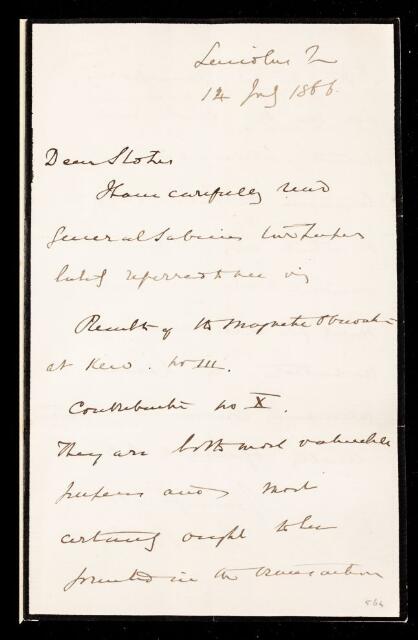 Lincolns In
12 July 1866.
Dear Stokes
I have carefully read
General Sabines two papers
lately referred to me viz
Results of the Magnetic Observations
at Kew. No III.
Contributions No X.
They are both most valuable
papers and most
certainly ought to be
printed in the transactions